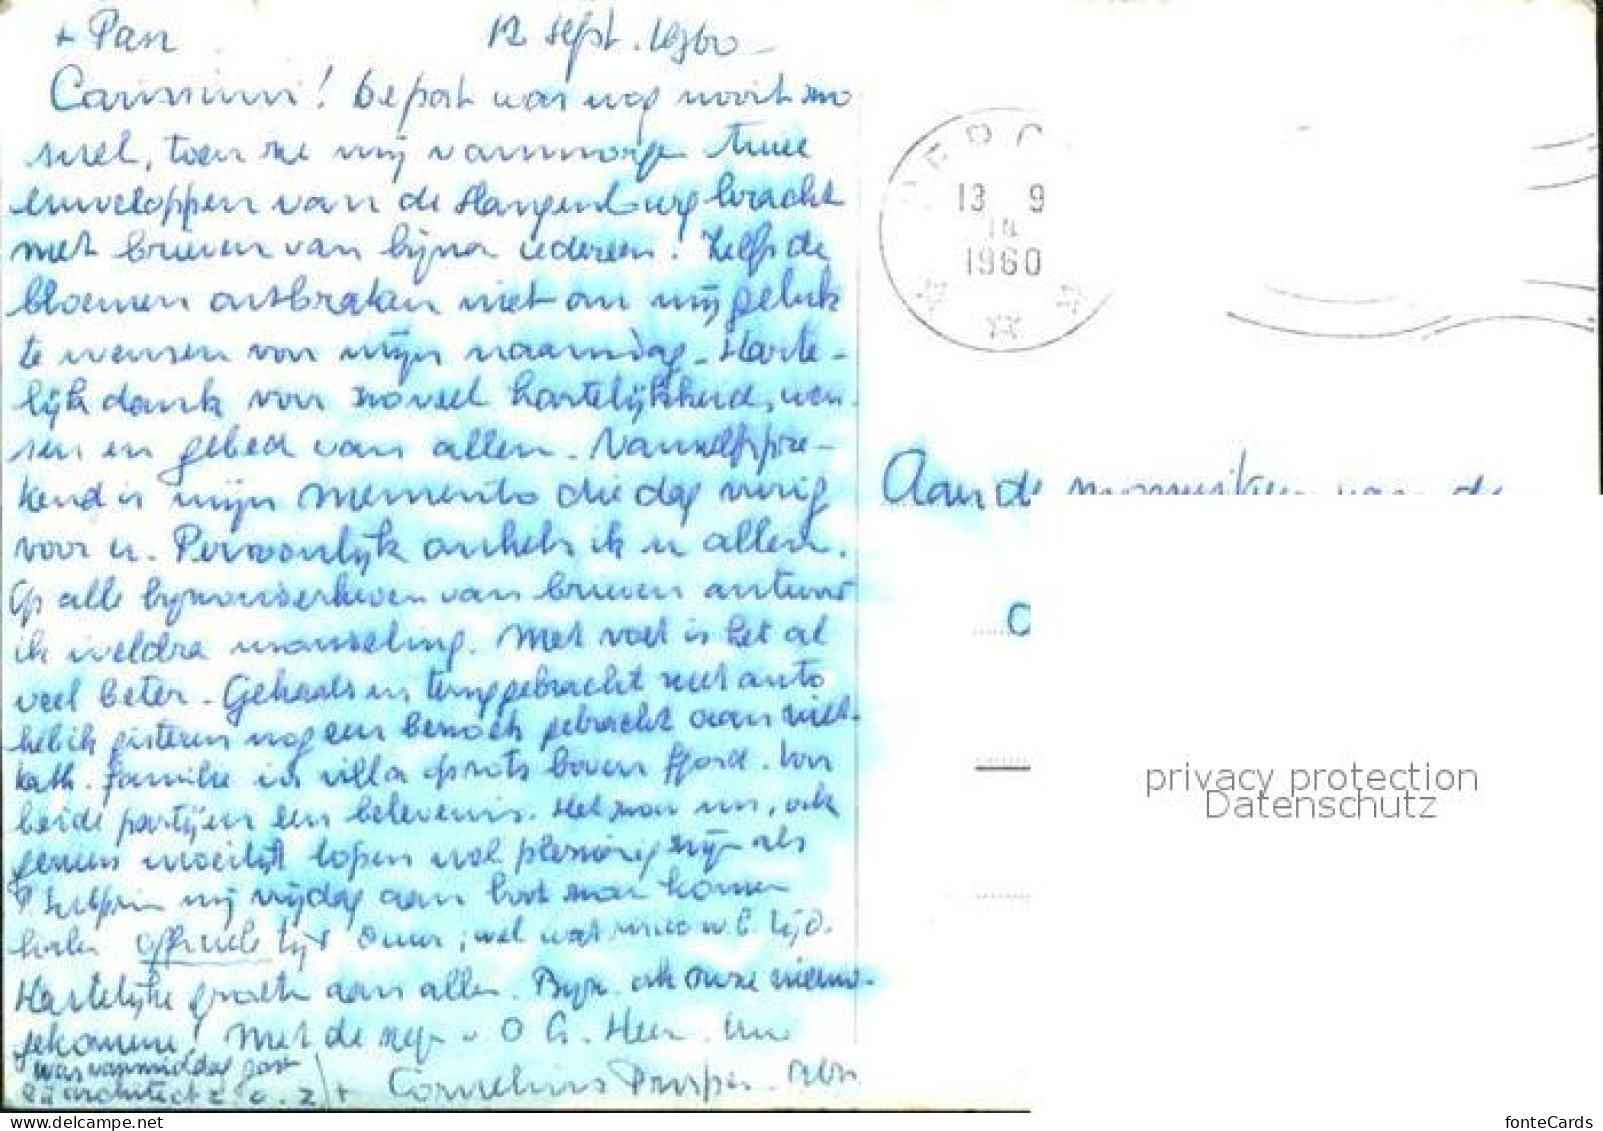 + Pax 12 sept. 1960 -
Carissimi! De post was nog nooit zo
snel, toen ze mij vanmorgen twee
enveloppen van de Slangenburg bracht
met brieven van bijna iedereen! Zelfs de
bloemen ontbraken niet om mij geluk
te wensen van mijn naamdag. Harte-
lijk dank voor zoveel hartelijkheid, wen-
sen en gebed van allen. Vanzelfspre-
kend is mijn Memento die dag vurig
voor u. Persoonlijk omhels ik u allen.
Op alle bijzonderheden van brieven antwoord
ik weldra Met voet is het al
veel beter. Gehaald en teruggebracht met auto
heb ik gisteren nog een bezoek gebracht aan niet-
kath. familie in villa boven fjord. Voor
beide partijen een belevenis. Het zou nu, ook
moeilijk lopen wel plezierig zijn als
P. mij vrijdag aan boot zou komen
halen officiele tijd wel wat t. tijd.
Hartelijke groeten aan allen. Bijz. ook onze nieuw-
gekomene! Met de zegen v. O. L. Heer. Uw
was vanmiddag gast
bij architect z. o. z. + Cornelius
13 9
14
1960
Aan de monniken van de
privacy protection
Datenschutz
fonteCards